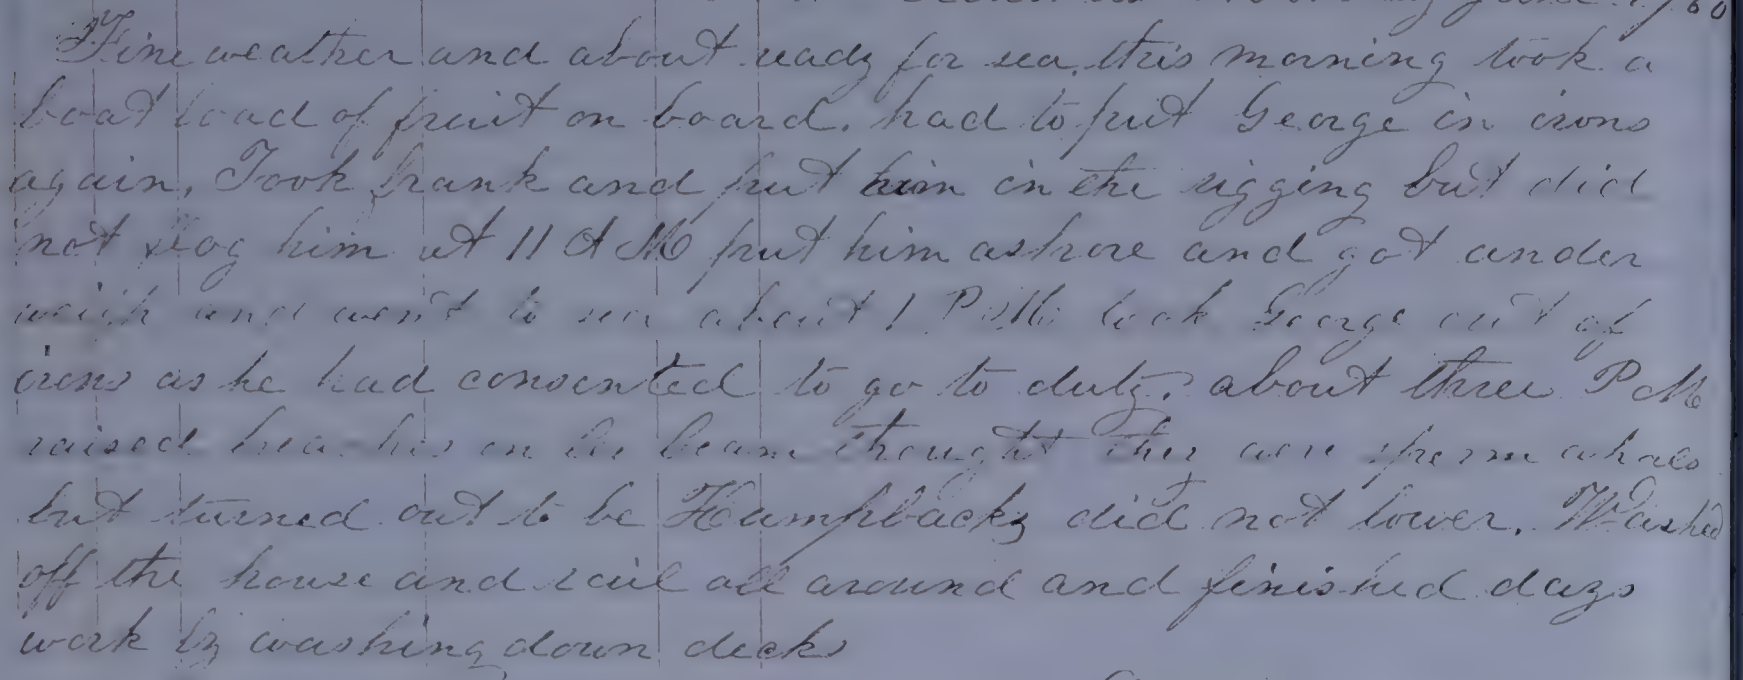 Fine weather and about ready for sea, this morning took a
boat load of fruit on board. had to put George in irons
again. Took Frank and put him in the rigging but did
not flog him at 11 A M put him ashore and got under
weigh and went to sea about 1 P.M. took George out of
irons as he had consented to go to duty. about three P M
raised breaches on lee beam thought they were sperm whales
but turned out to be Humpbacks did not lower. Washed
off the house and rail all around and finished days
work by washing down decks